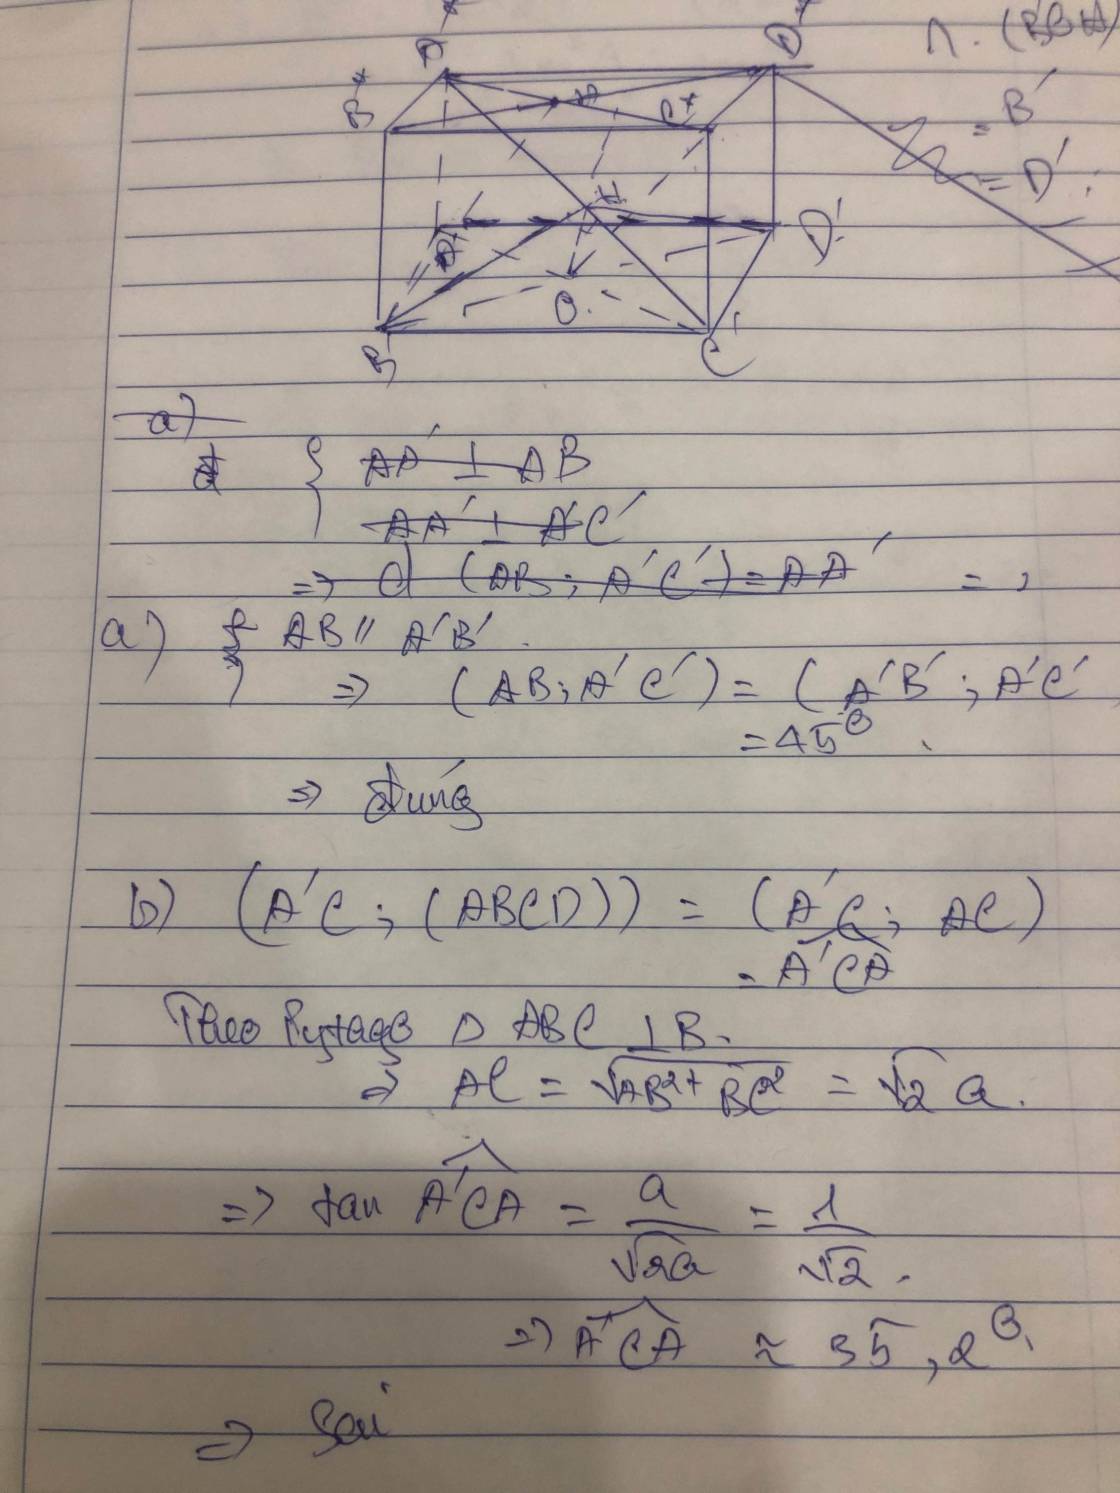 A
D
∩. (BBA)
B
C
= B'
= D'
H
A'
D'
O
B'
C'
a)
{ AA' ⊥ AB
AA' ⊥ A'C'
=> d (AB; A'C') = AA' =
a) { AB // A'B'.
=> (AB; A'C') = (A'B'; A'C'
= 45°.
=> đúng
b) (A'C; (ABCD)) = (A'C; AC)
= A'CA
Theo Pytago Δ ABC ⊥ B.
=> AC = √AB²+BC² = √2 a.
=> tan A'CA = a/√2a = 1/√2.
=> A'CA ≈ 35,2°.
=> Sai